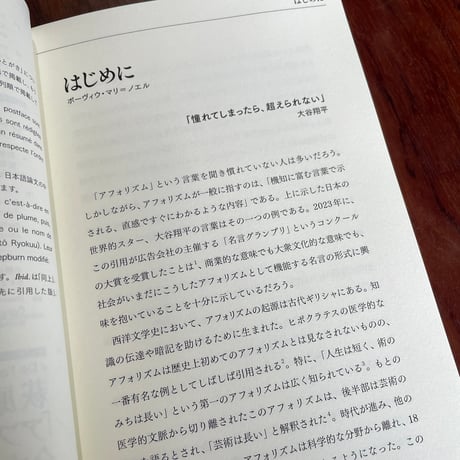 とがき」につ
で掲載し、も
列順で掲載し
postface so
s sont rédigé
en résumé dans
respecte l'ordre
日本語論文のみ
ます。
c'est-à-dire en
de plume, puis
e ou le nom de
tō Ryokuu). Le
epburn modifié.
す。Ibid. は「同上」
先に引用した版と
はじめに
はじめに
ボーヴィウ・マリ＝ノエル
「憧れてしまったら、超えられない」
大谷翔平
「アフォリズム」という言葉を聞き慣れていない人は多いだろう。
しかしながら、アフォリズムが一般に指すのは、「機知に富む言葉で示
される、直感ですぐにわかるような内容」である。上に示した日本の
世界的スター、大谷翔平の言葉はその一つの例である。2023年に、
この引用が広告会社の主催する「名言グランプリ」というコンクール
の大賞を受賞したことは¹、商業的な意味でも大衆文化的な意味でも、
社会がいまだにこうしたアフォリズムとして機能する名言の形式に興
味を抱いていることを十分に示しているだろう。
西洋文学史において、アフォリズムの起源は古代ギリシャにある。知
識の伝達や暗記を助けるために生まれた。ヒポクラテスの医学的な
アフォリズムは歴史上初めてのアフォリズムとは見なされないものの、
一番有名な例としてしばしば引用される²。特に、「人生は短く、術の
みちは長い」という第一のアフォリズムは広く知られている³。もとの
医学的文脈から切り離されたこのアフォリズムは、後半部は芸術の
を語るとされ、「芸術は長い」と解釈された⁴。時代が進み、他の
アフォリズムは科学的な分野から離れ、18
ようになった。この